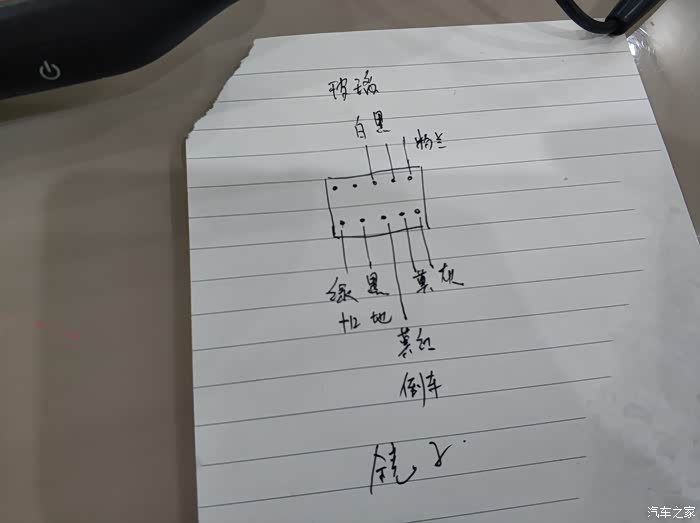 玻璃
白黑
粉兰
绿黑 黄灰
+12 地
黄红
倒车
镜子
汽车之家